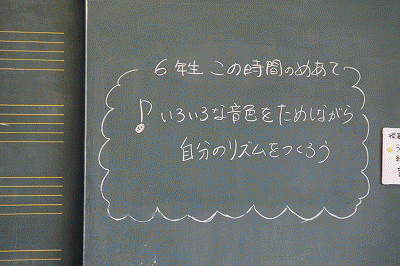 6年生 この時間のめあて
♪いろいろな音色をためしながら
自分のリズムをつくろう